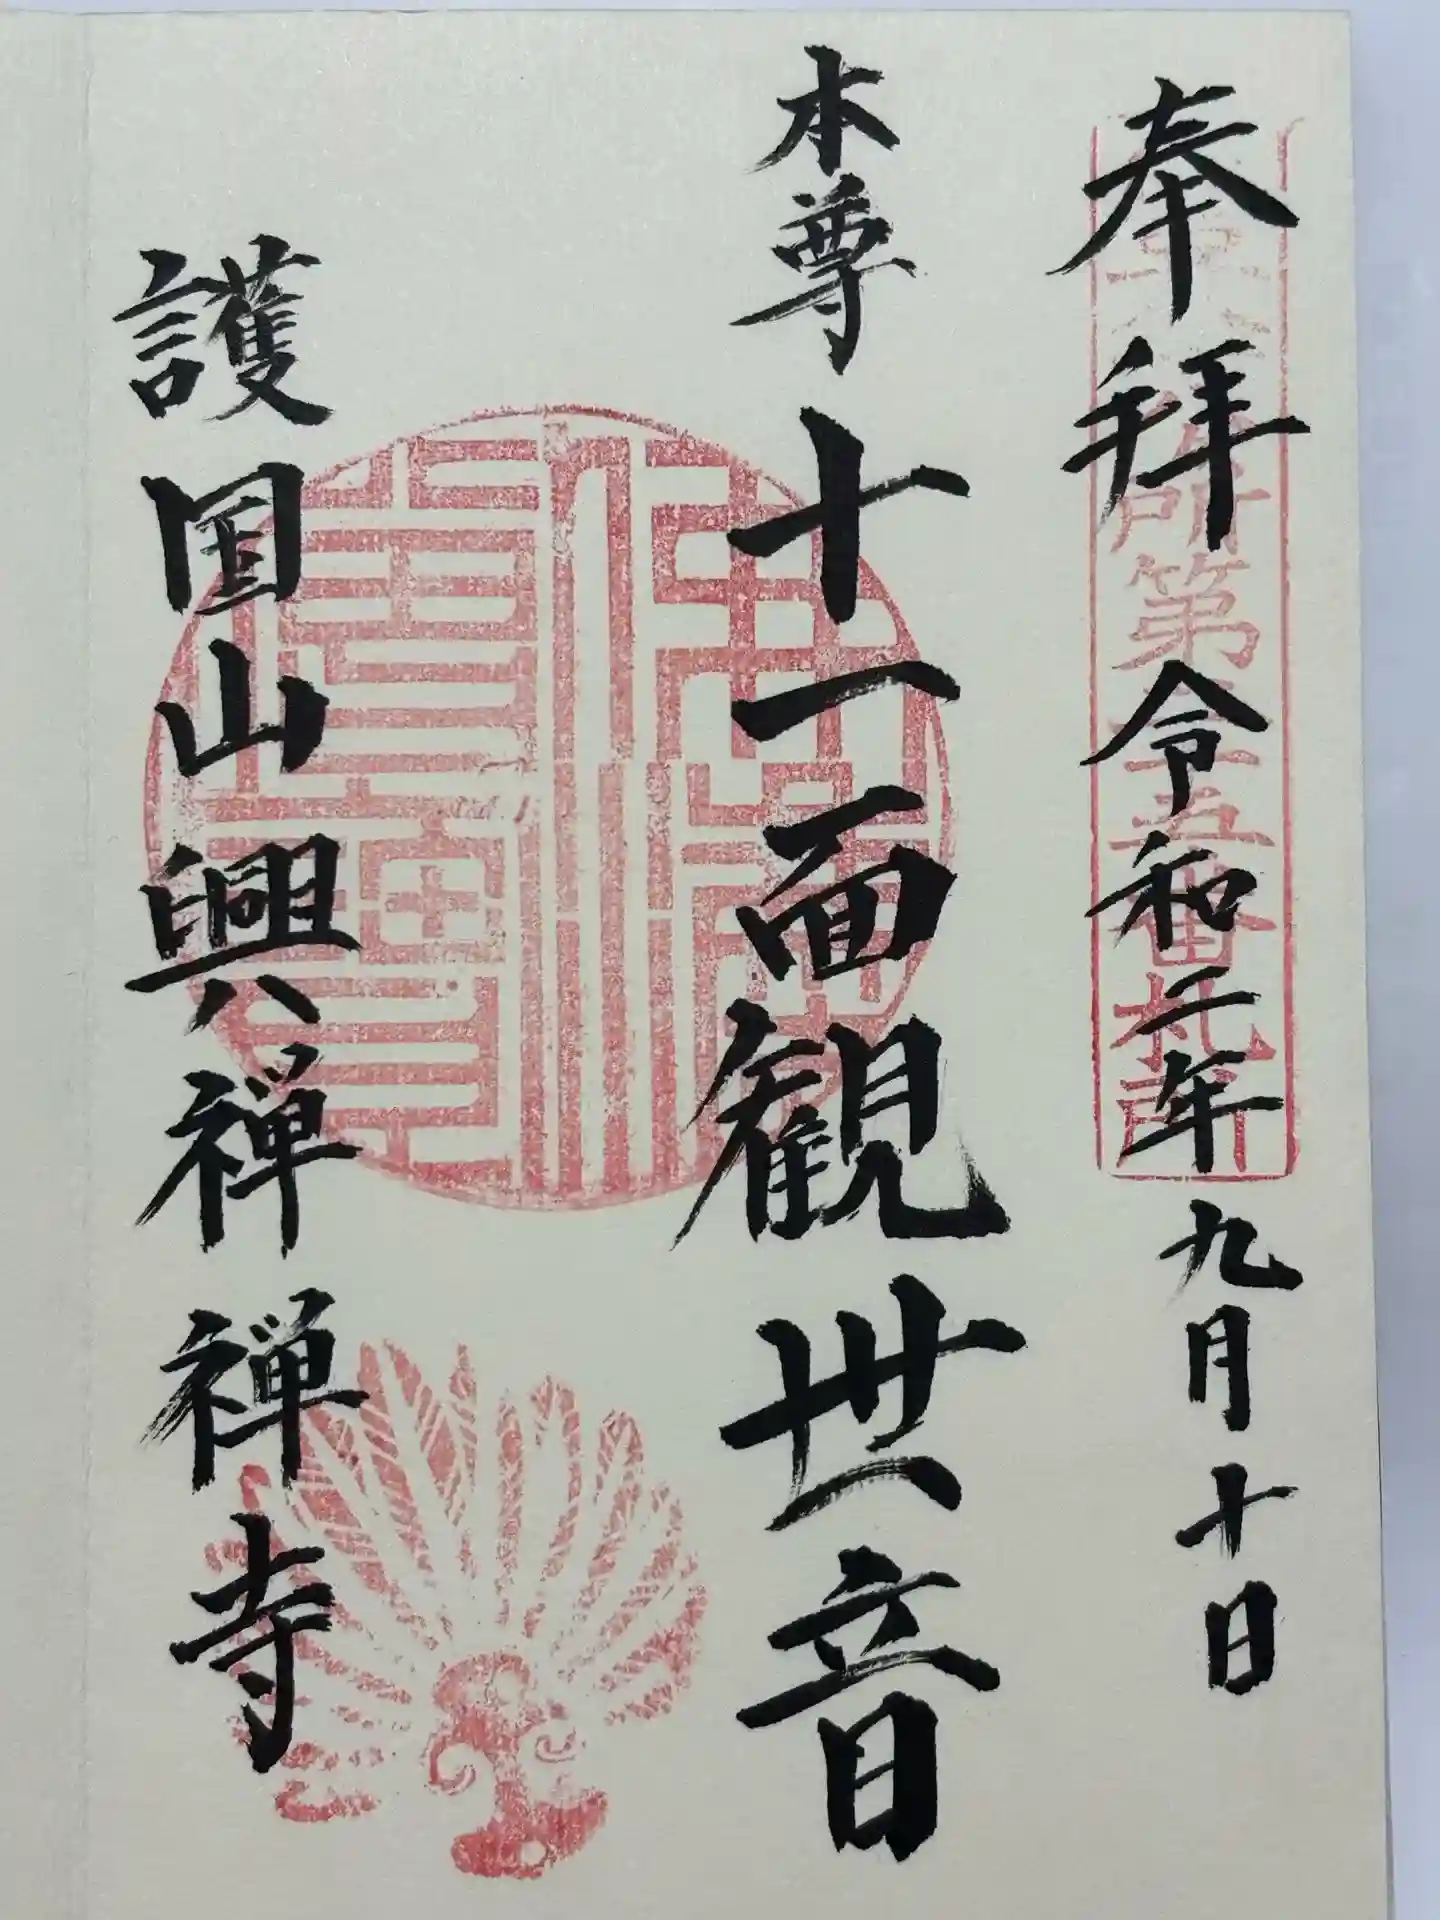 奉拝
令和二年九月十日
所第
五番札所
本尊十一面観世音
佛法僧寶
護国山興禅禅寺